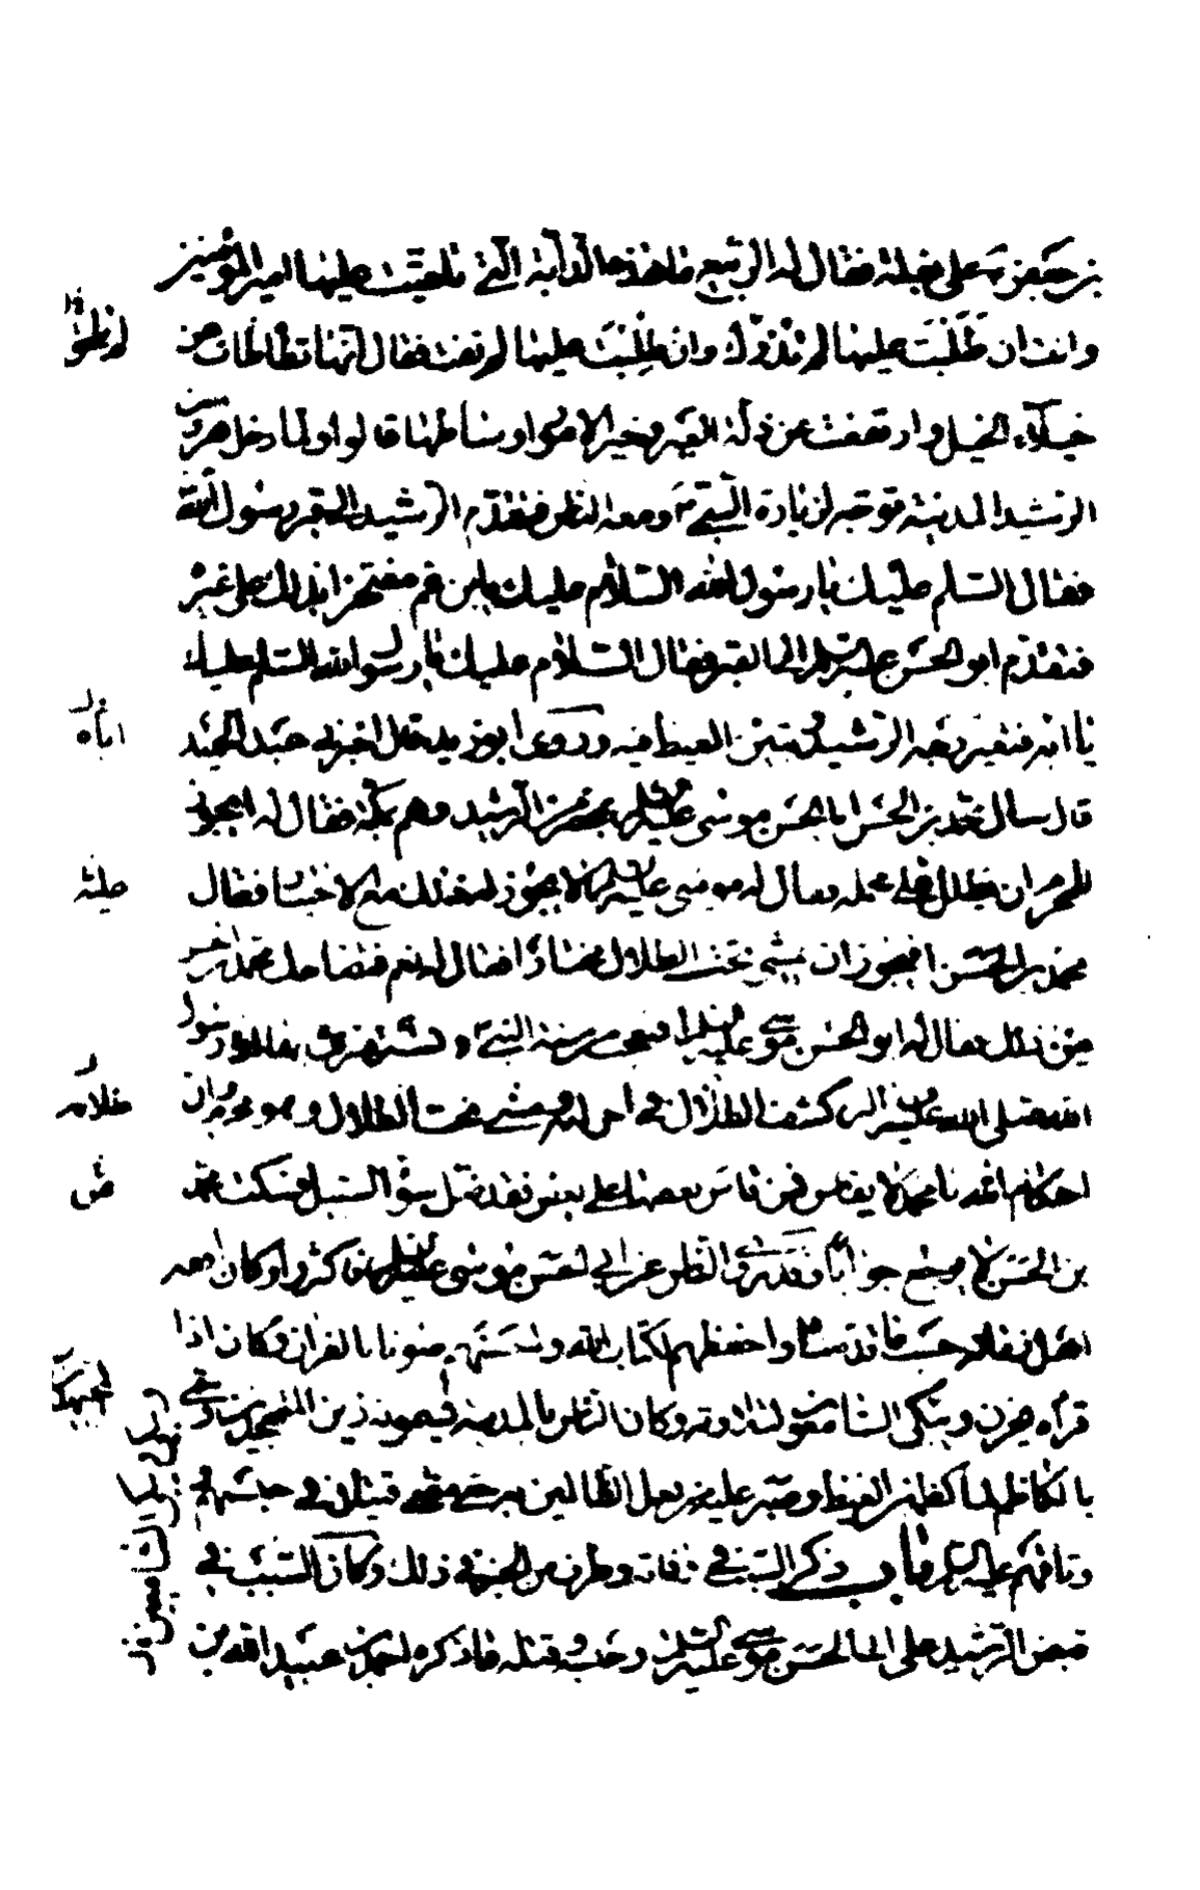 بن جعفر ع على بغلة فقال له الربيع ما هذه الدابة التي تلقيت عليها امير المؤمنين
وانت ان طَلَبْتَ عليها لم تدرك وان طُلِبْتَ عليها لم تفت فقال انها تطأطأت عن
خيلاء الخيل وارتفعت عن ذلة العير وخير الامور اوساطها قالوا ولما دخل هرون
الرشيد المدينة توجه لزيارة النبي ص ومعه الناس فتقدم الرشيد الى قبر رسول الله
فقال السلم عليك يا رسول الله السلام عليك يابن عم مفتخرا بذلك على غيره
فتقدم ابو الحسن عليه السلم الى القبر فقال السلام عليك يا رسول الله السلم عليك
يا ابه فتغير وجه الرشيد وتبين الغيظ فيه وروى ابو زيد قال اخبرني عبد الحميد
قال سال محمد بن الحسن ابا الحسن موسى عليه السلم بمحضر من الرشيد وهم بمكة فقال له ايجوز
للمحرم ان يظلل على محمله فقال له موسى عليه السلم لا يجوز له ذلك مع الاختيار فقال
محمد بن الحسن افيجوز ان يمشي تحت الظلال مختارا فقال له نعم فتضاحك محمد بن الحسن
من ذلك فقال له ابو الحسن موسى عليه السلم افتعجب من سنة النبي ص وتستهزئ بها ان رسول
الله صلى الله عليه واله كشف الظلال في احرامه ومشى تحت الظلال وهو محرم وان
احكام الله يا محمد لا يقاس فمن قاس بعضها على بعض فقد ضل سواء السبيل فسكت محمد
بن الحسن لا يرجع جوابا وقد روى الناس عن ابي الحسن موسى عليه السلم فاكثروا وكان افقه
اهل زمانه حسب ما قدمناه واحفظهم لكتاب الله واحسنهم صوتا بالقران وكان اذا
قرأه يحزن ويبكي السامعون لتلاوته وكان الناس بالمدينة يسمونه زين المتهجدين وسمي
بالكاظم لما كظم الغيظ وصبر عليه من فعل الظالمين به حتى مضى قتيلا في حبسهم
وثاقهم عليه السلم باب ذكر السبب في وفاته وطرف من الخبر في ذلك وكان السبب في
قبض الرشيد على ابي الحسن موسى عليه السلم وحبسه وقتله ما ذكره احمد بن عبيد الله بن
اباه
عليه
ظلاله